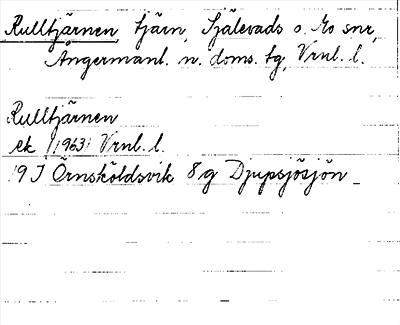 Rulltjärnen, tjärn, Själevads o. Mo snr,
Ångermanl. n. doms. tg, Vrnl. l.
Rulltjärnen
ek (1963) Vrnl. l.
19 I Örnsköldsvik 8 g Djupsjösjön